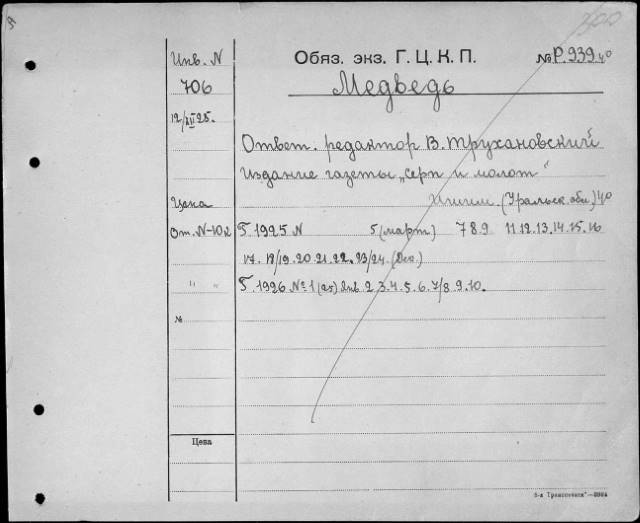 Инв. N
706
12/XII 25.
Обяз. экз. Г. Ц. К. П.
№ Р. 939 40
Медведь
Ответ. редактор В. Трухановский
Издание газеты „Серп и молот"
Цена
Ишим. (Уральск. обл.) 40
От. N-10к
Г. 1925 N 5 (март) 7 8 9 11. 12. 13. 14. 15. 16
17. 18/19. 20. 21. 22. 23/24. (Дек.)
" "
Г. 1926 № 1 (25) Янв 2. 3. 4. 5. 6. 7/8. 9. 10.
№
Цена